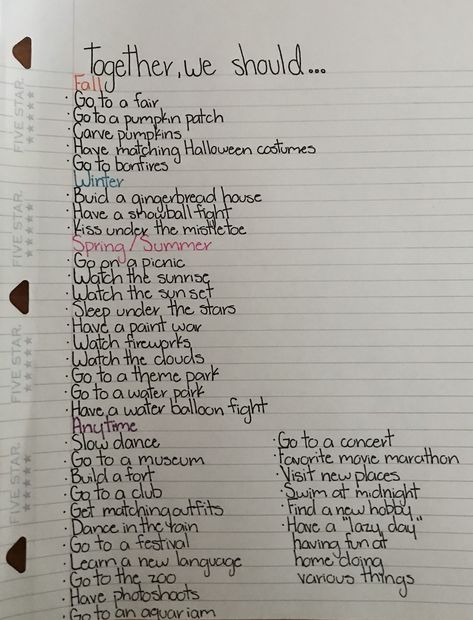 Together, we should...
Fall
· Go to a fair
· Go to a pumpkin patch
· Carve pumpkins
· Have matching Halloween costumes
· Go to bonfires
Winter
· Buid a gingerbread house
· Have a snowball fight
· Kiss under the mistletoe
Spring/Summer
· Go on a picnic
· Watch the sunrise
· Watch the sunset
· Sleep under the stars
· Have a paint war
· Watch fireworks
· Watch the clouds
· Go to a theme park
· Go to a water park
· Have a water balloon fight
Anytime
· Slow dance
· Go to a museum
· Build a fort
· Go to a club
· Get matching outfits
· Dance in the rain
· Go to a festival
· Learn a new language
· Go to the zoo
· Have photoshoots
· Go to an aquariam
· Go to a concert
· Favorite movie marathon
· Visit new places
· Swim at midnight
· Find a new hobby
· Have a "lazy day"
having fun at
home doing
various things
FIVE STAR.
FIVE STAR.
FIVE STAR.
FIVE STAR.